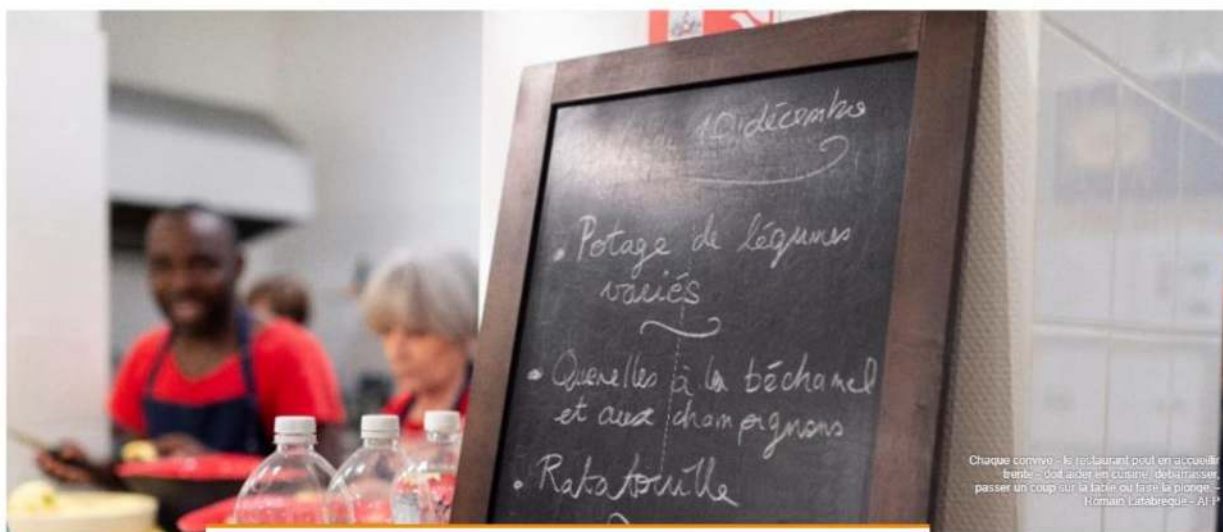 10 décembre
• Potage de légumes
variés
• Quenelles à la béchamel
et aux champignons
• Ratatouille
Chaque convive - le restaurant peut en accueillir
trente - doit aider en cuisine, débarrasser,
passer un coup sur la table ou faire la plonge. -
Romain Lafabrègue - AFP